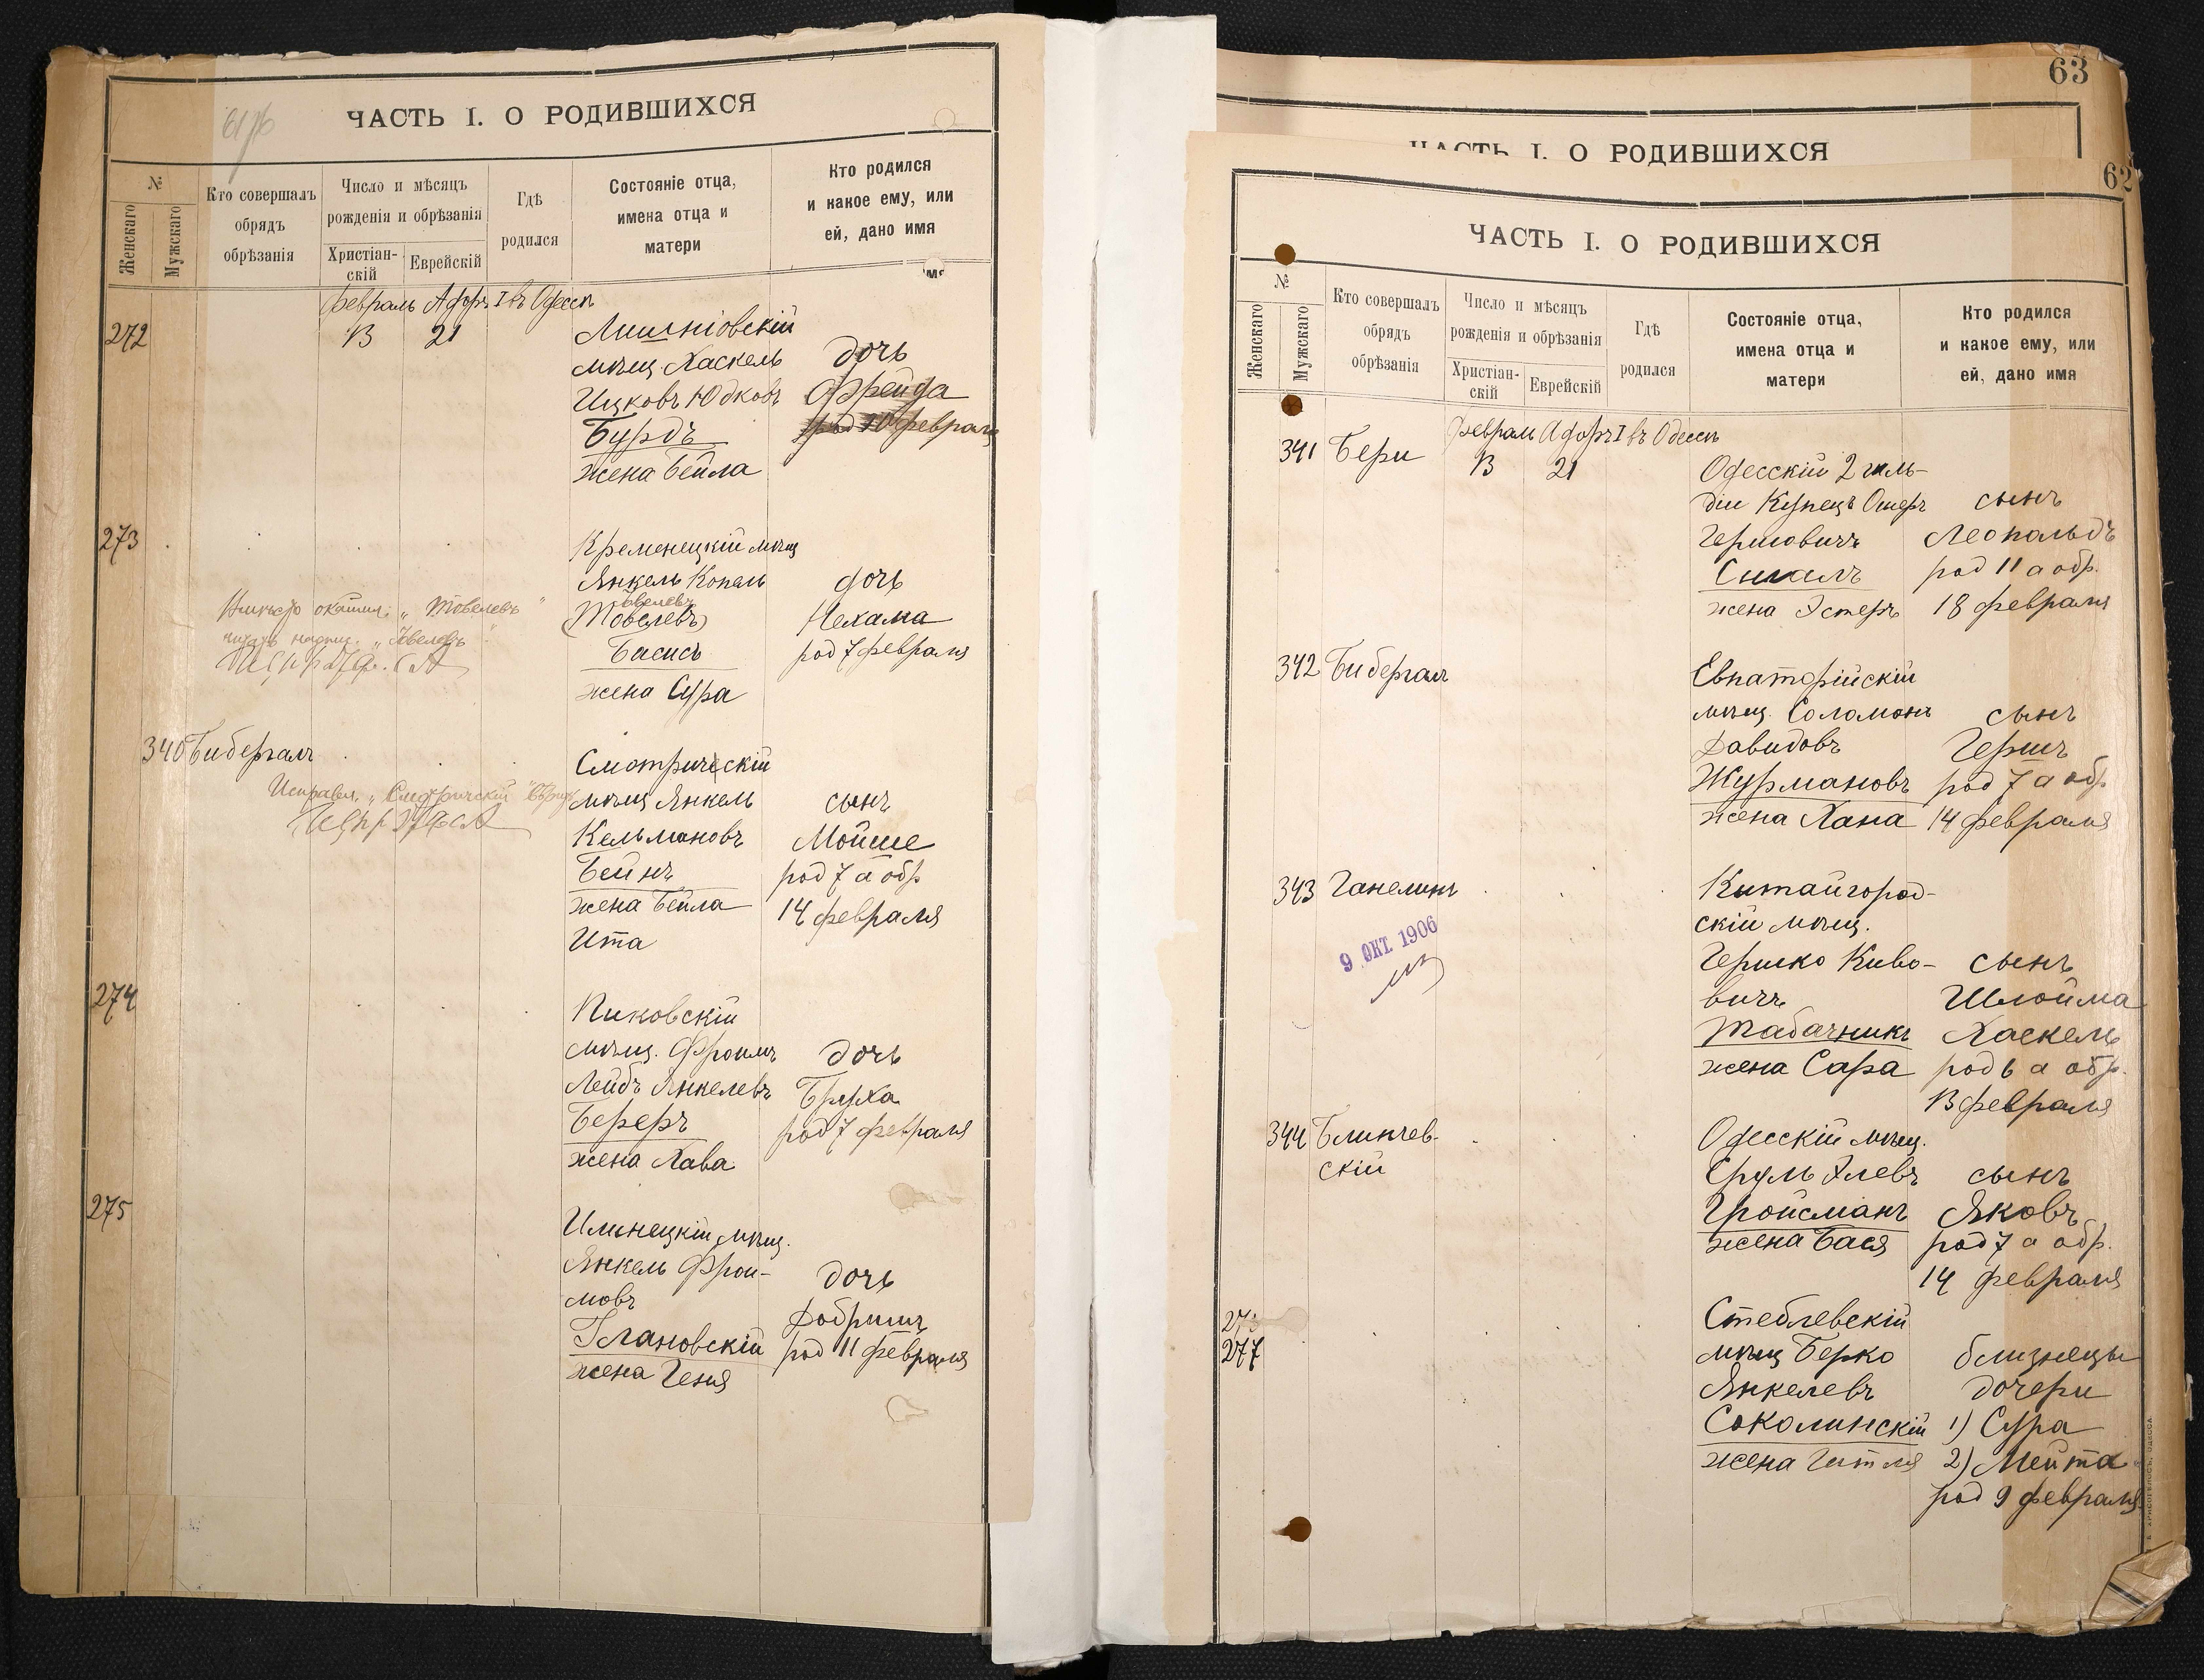 ЧАСТЬ I. О РОДИВШИХСЯ
№
Женскаго
Мужскаго
Кто совершалъ
обрядъ
обрѣзанія
Число и мѣсяцъ
рожденія и обрѣзанія
Христіан-
скій
Еврейскій
Гдѣ
родился
Состояніе отца,
имена отца и
матери
Кто родился
и какое ему, или
ей, дано имя
Февраль Адоръ I въ Одессѣ
272
13
21
мѣщ. Хаскель
Ицковъ Юдковъ
Бурдъ
жена Бейла
дочь
Фрейда
февраля
273
Кременецкій мѣщ
Янкель Копель
(Товелевъ)
Басисъ
жена Сура
дочь
Нехама
род 7 февраля
„Товелевъ"
340
Бибергалъ
Смотричскій
мѣщ Янкель
Кельмановъ
Бейнъ
жена Бейла
Ита
сынъ
Мойше
род 7 а обр
14 февраля
Исправл. „Смотричскій"
274
Пиковскій
мѣщ. Фроимъ
Лейбъ Янкелевъ
Береръ
жена Хава
дочь
Бруха
род 7 февраля
275
Ильнецкій мѣщ.
Янкель Фрои-
мовъ
жена Геня
дочь
Добришъ
род 11 февраля
63
ЧАСТЬ I. О РОДИВШИХСЯ
62
ЧАСТЬ I. О РОДИВШИХСЯ
№
Женскаго
Мужскаго
Кто совершалъ
обрядъ
обрѣзанія
Число и мѣсяцъ
рожденія и обрѣзанія
Христіан-
скій
Еврейскій
Гдѣ
родился
Состояніе отца,
имена отца и
матери
Кто родился
и какое ему, или
ей, дано имя
Февраль Адоръ I въ Одессѣ
341
Бери
13
21
Одесскій 2 гиль-
діи Купецъ Ошеръ
Гершовичъ
Сигалъ
жена Эстеръ
сынъ
Леопольдъ
род 11 а обр.
18 февраля
342
Бибергал
Евпаторійскій
мѣщ. Соломонъ
Давидовъ
Журмановъ
жена Хана
сынъ
Гершъ
род 7 а обр
14 февраля
343
Ганелинъ
9 ОКТ 1906
Китайгород-
скій мѣщ.
Гершко Киво-
вичъ
Табачникъ
жена Сара
сынъ
Шлойма
Хаскель
род 6 а обр.
13 февраля
344
Блинчев-
скій
Одесскій мѣщ.
Сруль Элевъ
Гройсманъ
жена Бася
сынъ
Яковъ
род 7 а обр.
14 февраля
277
Стеблевскій
мѣщ Берко
Янкелевъ
Соколинскій
жена Гитля
близнецы
дочери
1) Сура
2) Мейта
род 9 февраля